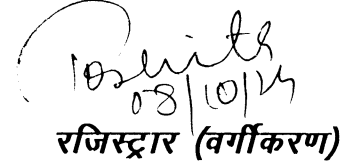 08/10/24
रजिस्ट्रार (वर्गीकरण)